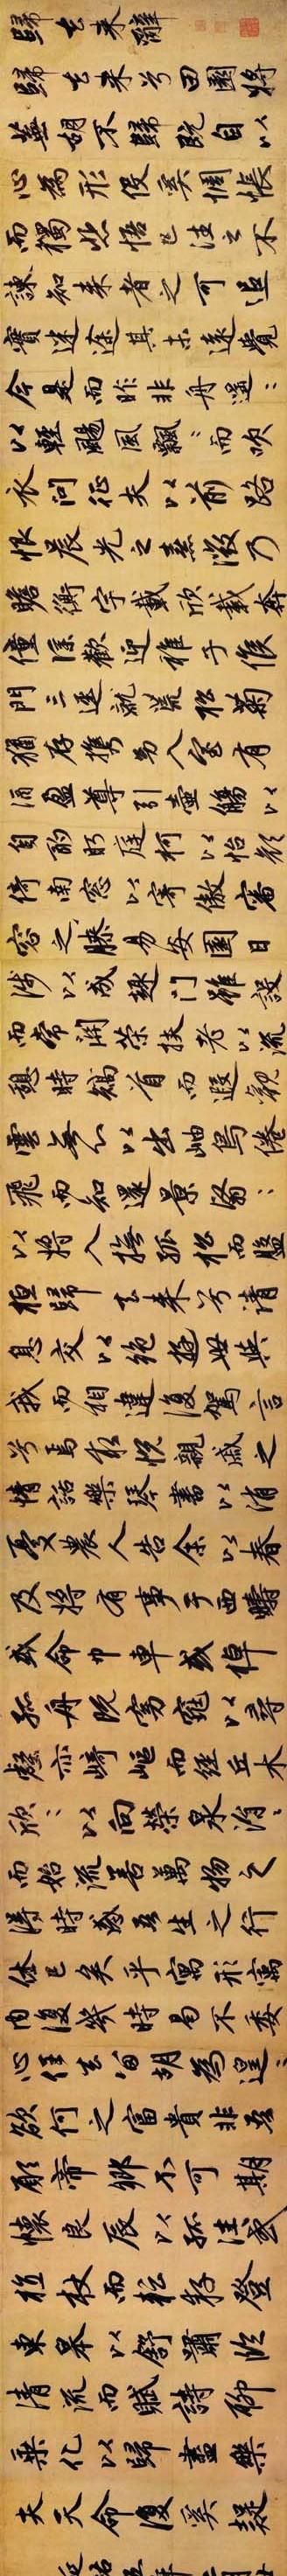 歸去來辭
歸去來兮田園將
蕪胡不歸既自以
心為形役奚惆悵
而獨悲悟已往之不
諫知來者之可追
實迷途其未遠覺
今是而昨非舟遙〻
以輕颺風飄〻而吹
衣問征夫以前路
恨晨光之熹微乃
瞻衡宇載欣載奔
僮僕歡迎稚子候
門三逕就荒松菊
猶存携幼入室有
酒盈尊引壺觴以
自酌眄庭柯以怡顏
倚南窓以寄傲審
容之膝易安園日
涉以成趣門雖設
而常關策扶老以流
憩時矯首而遐觀
雲無心以出岫鳥倦
飛而知還景翳〻
以將入撫孤松而盤
桓歸去來兮請
息交以絕遊世與
我而相違復駕言
兮焉求悅親戚之
情話樂琴書以消
憂農人告余以春
及將有事于西疇
或命巾車或棹
孤舟既窈窕以尋
壑亦崎嶇而經丘木
欣〻以向榮泉涓〻
而始流善萬物之
得時感吾生之行
休已矣乎寓形寓
內復幾時曷不委
心任去留胡為遑〻
欲何之富貴非吾
願帝鄉不可期
懷良辰以孤往或
植杖而耘耔登
東皋以舒嘯臨
清流而賦詩聊
乘化以歸盡樂
夫天命復奚疑